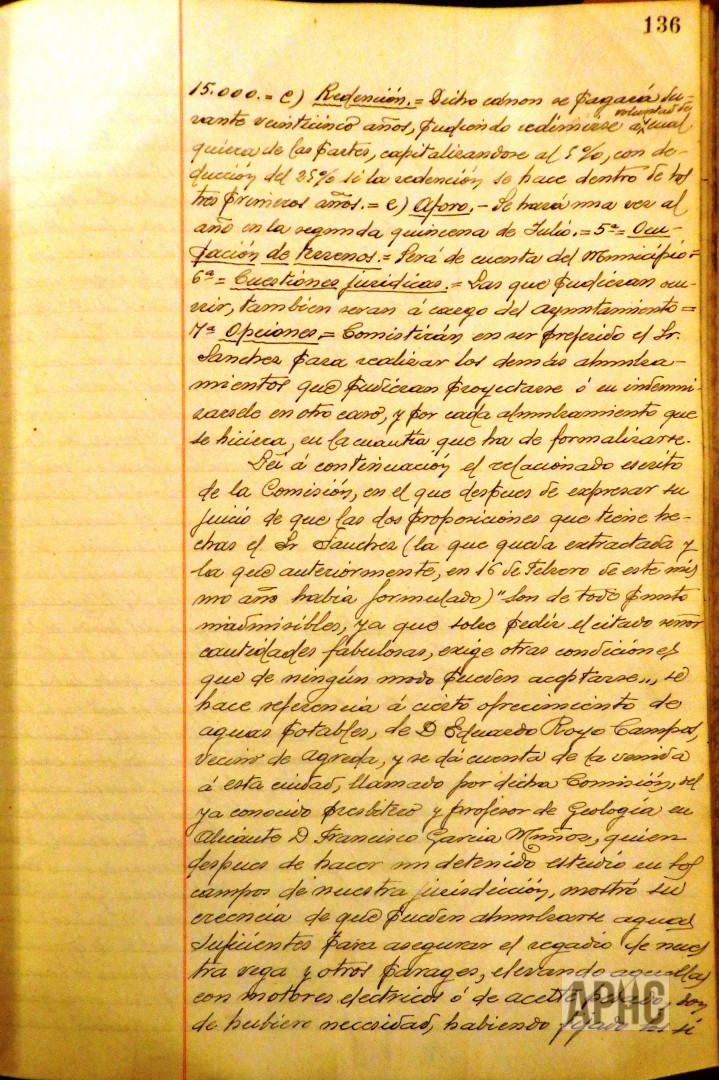 136
15.000.= c) Redención.= Dicho cánon se pagará du-
rante veinticinco años, pudiendo redimirse a voluntad de cual
quiera de las partes, capitalizandose al 5%, con de-
ducción del 25% si la redención se hace dentro de los
tres primeros años.= e) Aforo.- Se hará una vez al
año en la segunda quincena de Julio.= 5ª= Ocu-
pación de terrenos.= Será de cuenta del Municipio=
6ª= Cuestiones juridicas.= Las que pudieran ocu-
rrir, tambien seran á cargo del Ayuntamiento=
7ª Opciones.= Consistirán en ser preferido el Sr.
Sanchez para realizar los demás alumbra-
mientos que pudieran proyectarse ó en indemni
zarsele en otro caso, y por cada alumbramiento que
se hiciera, en la cuantia que ha de formalizarse.
Leí á continuación el relacionado escrito
de la Comisión, en el que despues de expresar su
juicio de que las dos proposiciones que tiene he-
chas el Sr Sanchez (la que queda extractada y
la que anteriormente, en 16 de Febrero de este mis
mo año habia formulado) "son de todo punto
inadmisibles, ya que sobre pedir el citado señor
cantidades fabulosas, exige otras condiciones
que de ningún modo pueden aceptarse", se
hace referencia á cierto ofrecimiento de
aguas potables, de D Eduardo Royo Campos,
vecino de Agreda, y se dá cuenta de la venida
á esta ciudad, llamado por dicha Comisión, del
ya conocido presbítero y profesor de Geología en
Alicante D Francisco Garcia Muñoz, quien
despues de hacer un detenido estudio en los
campos de nuestra jurisdicción, mostró su
creencia de que pueden alumbrarse aguas
suficientes para asegurar el regadio de nues
tra vega y otros parages, elevando aquellas
con motores electricos ó de aceite pesado, don
de hubiere necesidad, habiendo fijado si
APHC